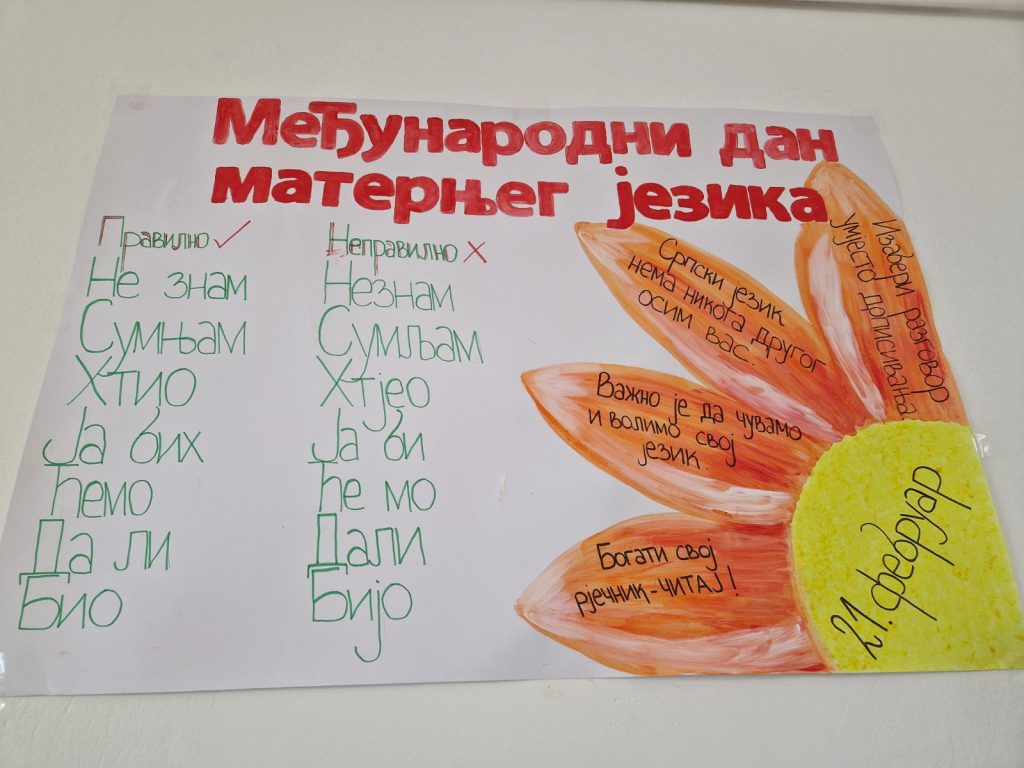 Међународни дан
матерњег језика
Правилно ✓
Не знам
Сумњам
Хтио
Ја бих
Ћемо
Да ли
Био
Неправилно X
Незнам
Сумљам
Хтјео
Ја би
Ће мо
Дали
Бијо
Српски језик
нема никога другог
осим вас.
Изабери разговор
умјесто дописивања
Важно је да чувамо
и волимо свој
језик.
Богати свој
рјечник-читај!
21. фебруар